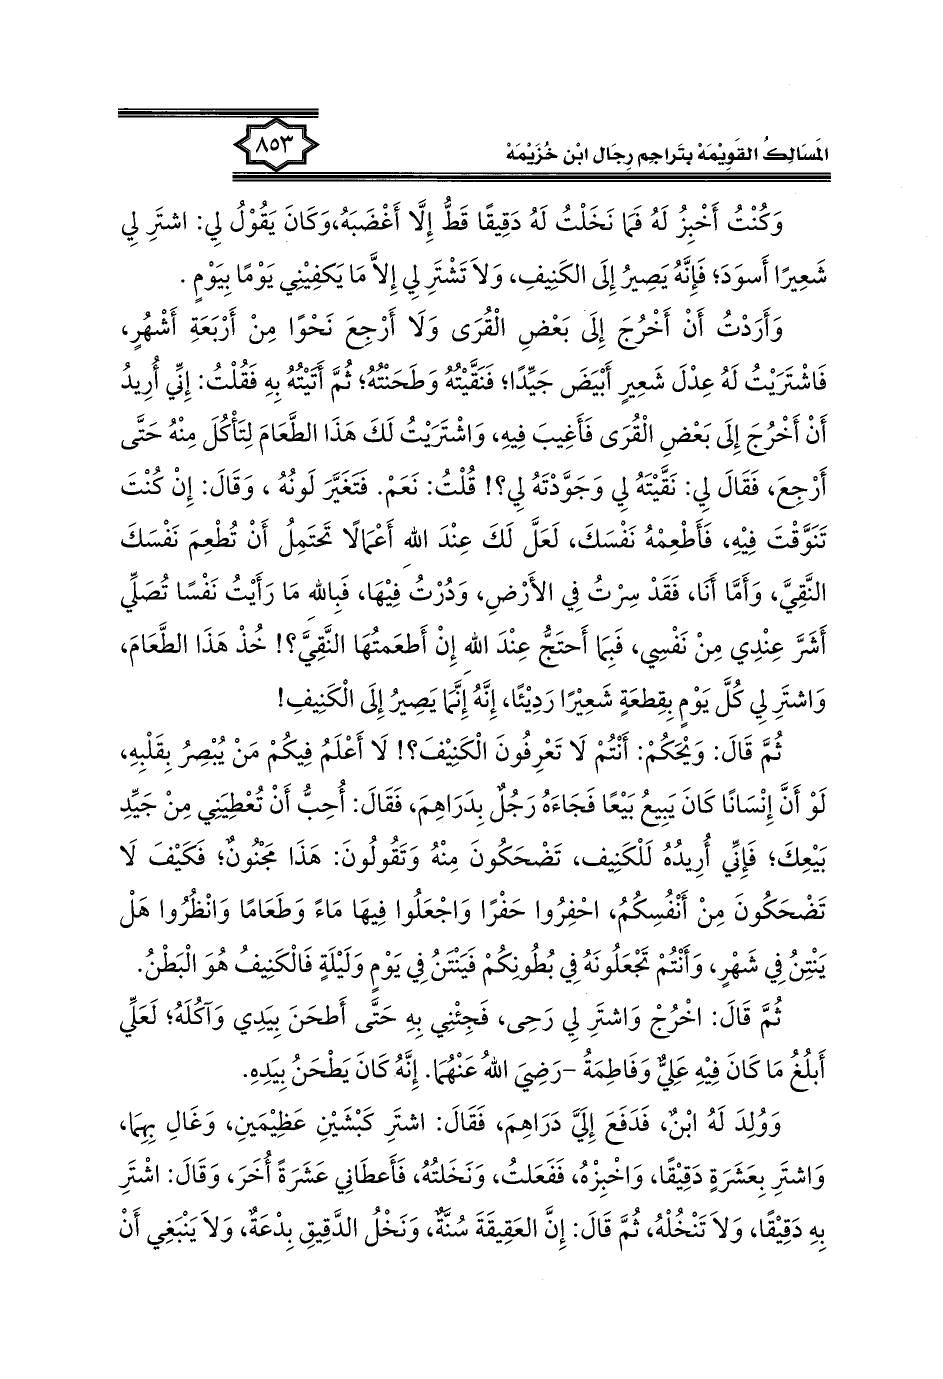 المَسَالِكُ القَوِيْمَهْ بتَراجم رِجَال ابْن خُزَيْمَهْ
٨٥٣
وَكُنْتُ أَخْبِزُ لَهُ فَمَا نَخَلْتُ لَهُ دَقِيقًا قَطُّ إِلَّا أَغْضَبَهُ،وَكَانَ يَقُوْلُ لِي: اشتَرِ لِي
شَعِيرًا أَسوَدَ؛ فَإِنَّهُ يَصِيرُ إِلَى الكَنِيفِ، وَلاَ تَشْتَرِ لِي إِلاَّ مَا يَكفِيْنِي يَوْمًا بِيَوْمٍ .
وَأَرَدْتُ أَنْ أَخْرُجَ إِلَى بَعْضِ الْقُرَى وَلَا أَرْجِعَ نَحْوًا مِنْ أَرْبَعَةِ أَشْهُرٍ،
فَاشْتَرَيْتُ لَهُ عِدْلَ شَعِيرٍ أَبْيَضَ جَيِّدًا؛ فَنَقَّيْتُهُ وَطَحَنْتُهُ؛ ثُمَّ أَتَيْتُهُ بِهِ فَقُلْتُ: إِنِّي أُرِيدُ
أَنْ أَخْرُجَ إِلَى بَعْضِ الْقُرَى فَأَغِيبَ فِيهِ، وَاشْتَرَيْتُ لَكَ هَذَا الطَّعَامَ لِتَأْكُلَ مِنْهُ حَتَّى
أَرْجِعَ، فَقَالَ لِي: نَقَّيْتَهُ لِي وَجَوَّدْتَهُ لِي؟! قُلْتُ: نَعَمْ. فَتَغَيَّرَ لَونُهُ ، وَقَالَ: إِنْ كُنْتَ
تَنَوَّقْتَ فِيْهِ، فَأَطْعِمْهُ نَفْسَكَ، لَعَلَّ لَكَ عِنْدَ اللهِ أَعْمَالًا تَحْتَمِلُ أَنْ تُطْعِمَ نَفْسَكَ
النَّقِيَّ، وَأَمَّا أَنَا، فَقَدْ سِرْتُ فِي الأَرْضِ، وَدُرْتُ فِيْهَا، فَبِاللهِ مَا رَأَيْتُ نَفْسًا تُصَلِّي
أَشَرَّ عِنْدِي مِنْ نَفْسِي، فَبِمَا أَحتَجُّ عِنْدَ اللهِ إِنْ أَطعَمتُهَا النَّقِيَّ؟! خُذْ هَذَا الطَّعَامَ،
وَاشترِ لِي كُلَّ يَوْمٍ بِقِطعَةٍ شَعِيْرًا رَدِيْئًا، إِنَّهُ إِنَّمَا يَصِيرُ إِلَى الْكَنِيفِ!
ثُمَّ قَالَ: وَيْحَكُمْ: أَنْتُمْ لَا تَعْرِفُونَ الْكَنِيْفَ؟! لَا أَعْلَمُ فِيكُمْ مَنْ يُبْصِرُ بِقَلْبِهِ،
لَوْ أَنَّ إِنْسَانًا كَانَ يَبِيعُ بَيْعًا فَجَاءَهُ رَجُلٌ بِدَرَاهِمَ، فَقَالَ: أُحِبُّ أَنْ تُعْطِيَنِي مِنْ جَيِّدِ
بَيْعِكَ؛ فَإِنِّي أُرِيدُهُ لَلْكَنِيف، تَضْحَكُونَ مِنْهُ وَتَقُولُونَ: هَذَا مَجْنُونٌ؛ فَكَيْفَ لَا
تَضْحَكُونَ مِنْ أَنْفُسِكُمُ، احْفِرُوا حَفْرًا وَاجْعَلُوا فِيهَا مَاءً وَطَعَامًا وَانْظُرُوا هَلْ
يَنْتِنُ فِي شَهْرٍ، وَأَنْتُمْ تَجْعَلُونَهُ فِي بُطُونِكُمْ فَيَنْتَنُ فِي يَوْمٍ وَلَيْلَةٍ فَالْكَنِيفُ هُوَ الْبَطْنُ.
ثُمَّ قَالَ: اخْرُجْ وَاشترِ لِي رَحِى، فَجِئْنِي بِهِ حَتَّى أَطحَنَ بِيَدِي وَآكُلَهُ؛ لَعَلِّي
أَبلُغُ مَا كَانَ فِيْهِ عَلِيٌّ وَفَاطِمَةُ –رَضِيَ اللهُ عَنْهُمَا. إِنَّهُ كَانَ يَطْحَنُ بِيَدِهِ.
وَوُلِدَ لَهُ ابْنٌ، فَدَفَعَ إِلَيَّ دَرَاهِمَ، فَقَالَ: اشترِ كَبْشَيْنِ عَظِيْمَينِ، وَغَالِ بِهِمَا،
وَاشترِ بِعَشَرَةٍ دَقِيْقًا، وَاخْبِزْهُ، فَفَعَلتُ، وَنَخَلتُهُ، فَأَعطَانِي عَشَرَةً أُخَرَ، وَقَالَ: اشْتَرِ
بِهِ دَقِيْقًا، وَلاَ تَنْخُلْهُ، ثُمَّ قَالَ: إِنَّ العَقِيقَةَ سُنَّةٌ، وَنَخْلُ الدَّقِيقِ بِدْعَةٌ، وَلاَ يَنْبَغِي أَنْ